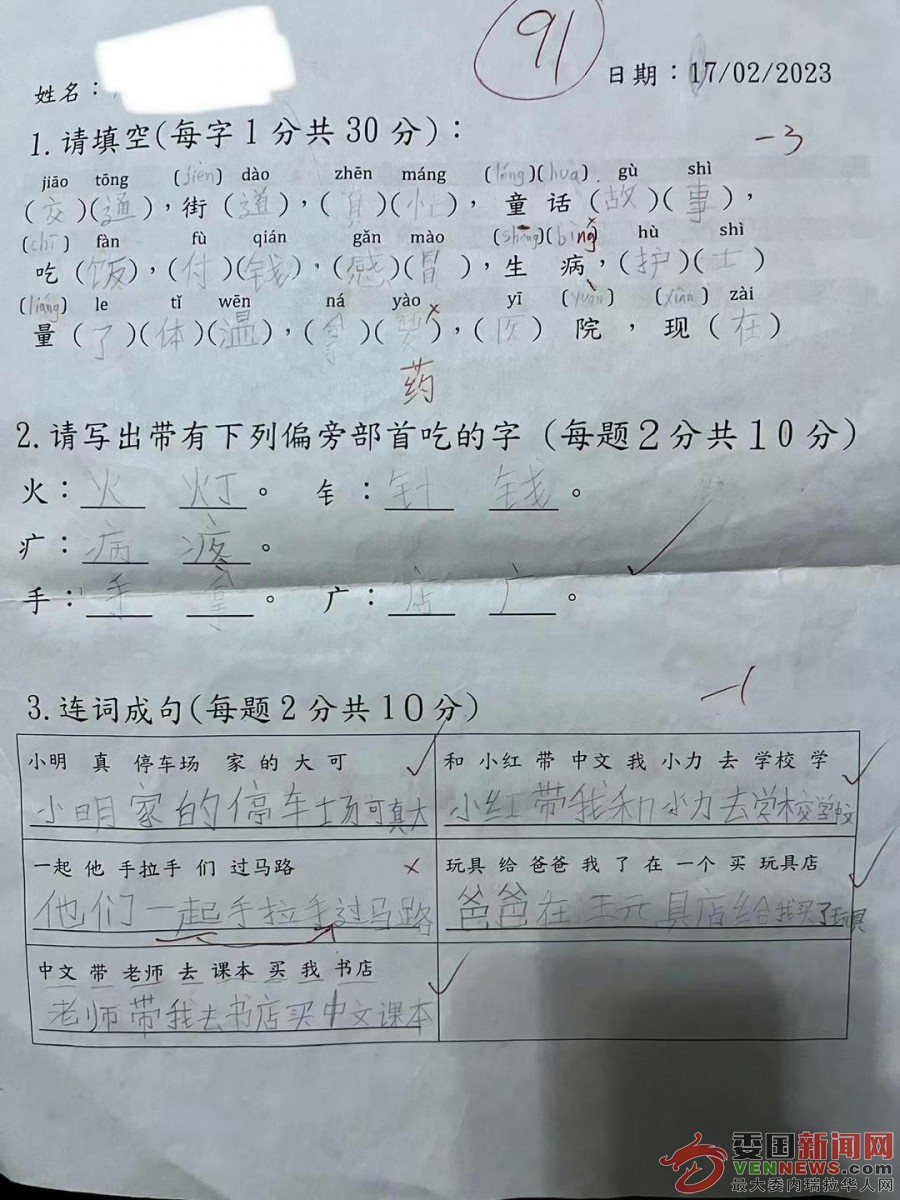 91
姓名: 日期:17/02/2023
1.请填空(每字1分共30分): -3
jiāo tōng (jiēn) dào zhēn máng (tóng)(huà) gù shì
(交)(通),街(道),(真)(忙),童话(故)(事),
(chī) fàn fù qián gǎn mào (shēng)(bìng) hù shì
吃(饭),(付)(钱),(感)(冒),生病,(护)(士)
(liáng) le tǐ wēn ná yào yī (yuàn) (xiàn) zài
量(了)(体)(温),(拿)( ),(医)院,现(在)
药
2.请写出带有下列偏旁部首吃的字(每题2分共10分)
火:火 灯。 钅:针 钱。
疒:病 疼。
手:手 拿。 广:店 广。
3.连词成句(每题2分共10分) -1
小明 真 停车场 家 的 大 可
小明家的停车场可真大
和 小红 带 中文 我 小力 去 学校 学
小红带我和小力去学校学中文
一起 他 手拉手 们 过马路
他们一起手拉手过马路
玩具 给 爸爸 我 了 在 一个 买 玩具店
爸爸在玩具店给我买了玩具
中文 带 老师 去 课本 买 我 书店
老师带我去书店买中文课本
委国新闻网
VENNEWS.COM
最大委内瑞拉华人网